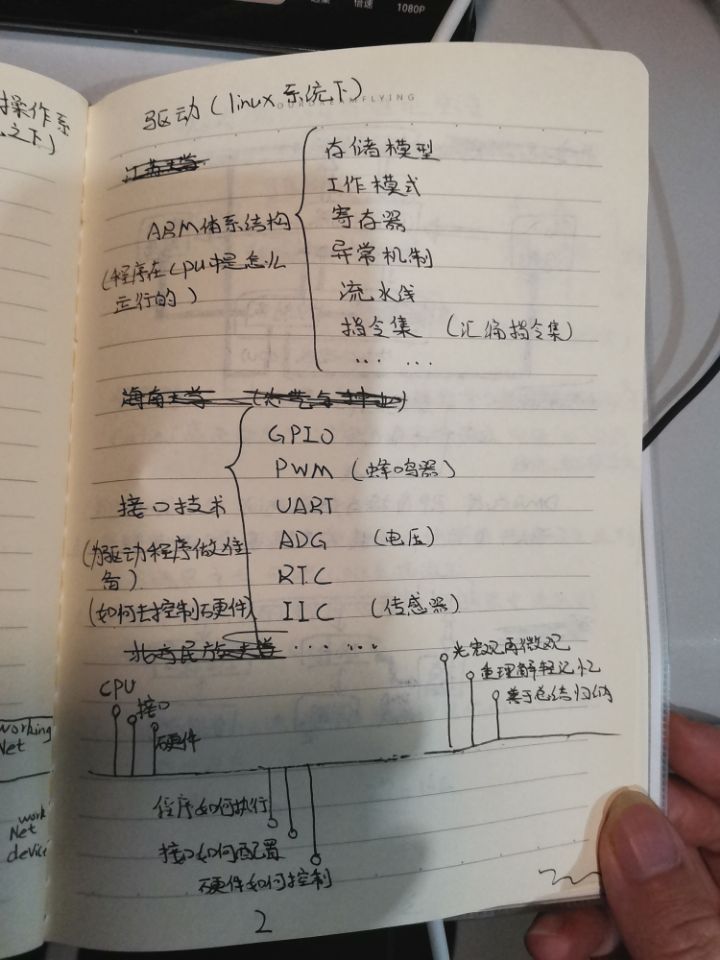 倍速 1080P
操作系
之下)
驱动(linux系统下)
江苏大学
ARM体系结构
(程序在CPU中是怎么
运行的)
存储模型
工作模式
寄存器
异常机制
流水线
指令集 (汇编指令集)
... ...
海南大学
接口技术
(为驱动程序做准
备)
(如何去控制硬件)
GPIO
PWM (蜂鸣器)
UART
ADG (电压)
RTC
IIC (传感器)
... ...
北方民族大学
CPU
接口
硬件
先宏观再微观
重理解轻记忆
善于总结归纳
程序如何执行
接口如何配置
硬件如何控制
working
Net
work
Net
device
2